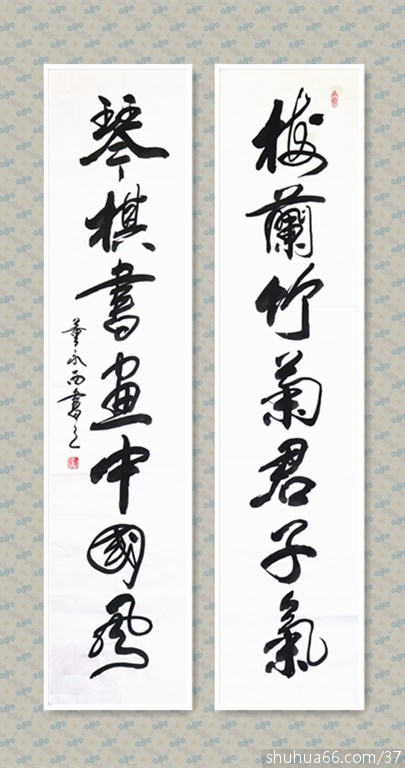 梅蘭竹菊君子氣
琴棋書畫中國風
董永西書之
shuhua66.com/37